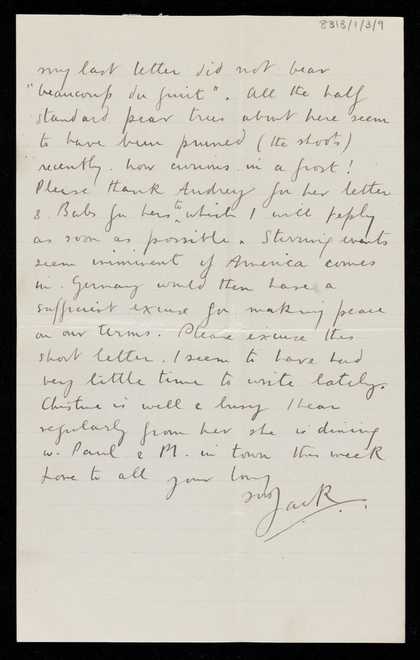 8313/1/3/9
my last letter did not bear
"beaucoup du fruit". All the half
standard pear trees about here seem
to have been pruned (the shoots)
recently. how curious in a frost!
Please thank Audrey for her letter
& Babs for hers to which I will reply
as soon as possible. Stirring events
seem imminent if America comes
in. Germany would then have a
sufficient excuse for making peace
on our terms. Please excuse this
short letter. I seem to have had
very little time to write lately.
Christine is well & busy I hear
regularly from her she is dining
w. Paul & M. in town this week
Love to all your loving
son Jack.